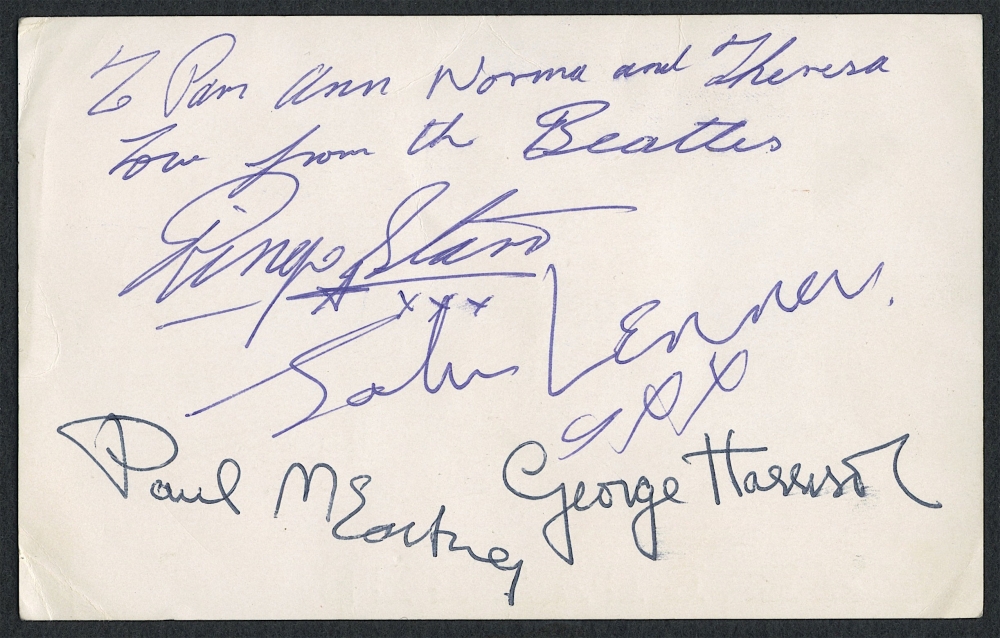 To Pam Ann Norma and Theresa
Love from the Beatles
Ringo Starr
xxx
John Lennon.
xxx
Paul McCartney
George Harrison